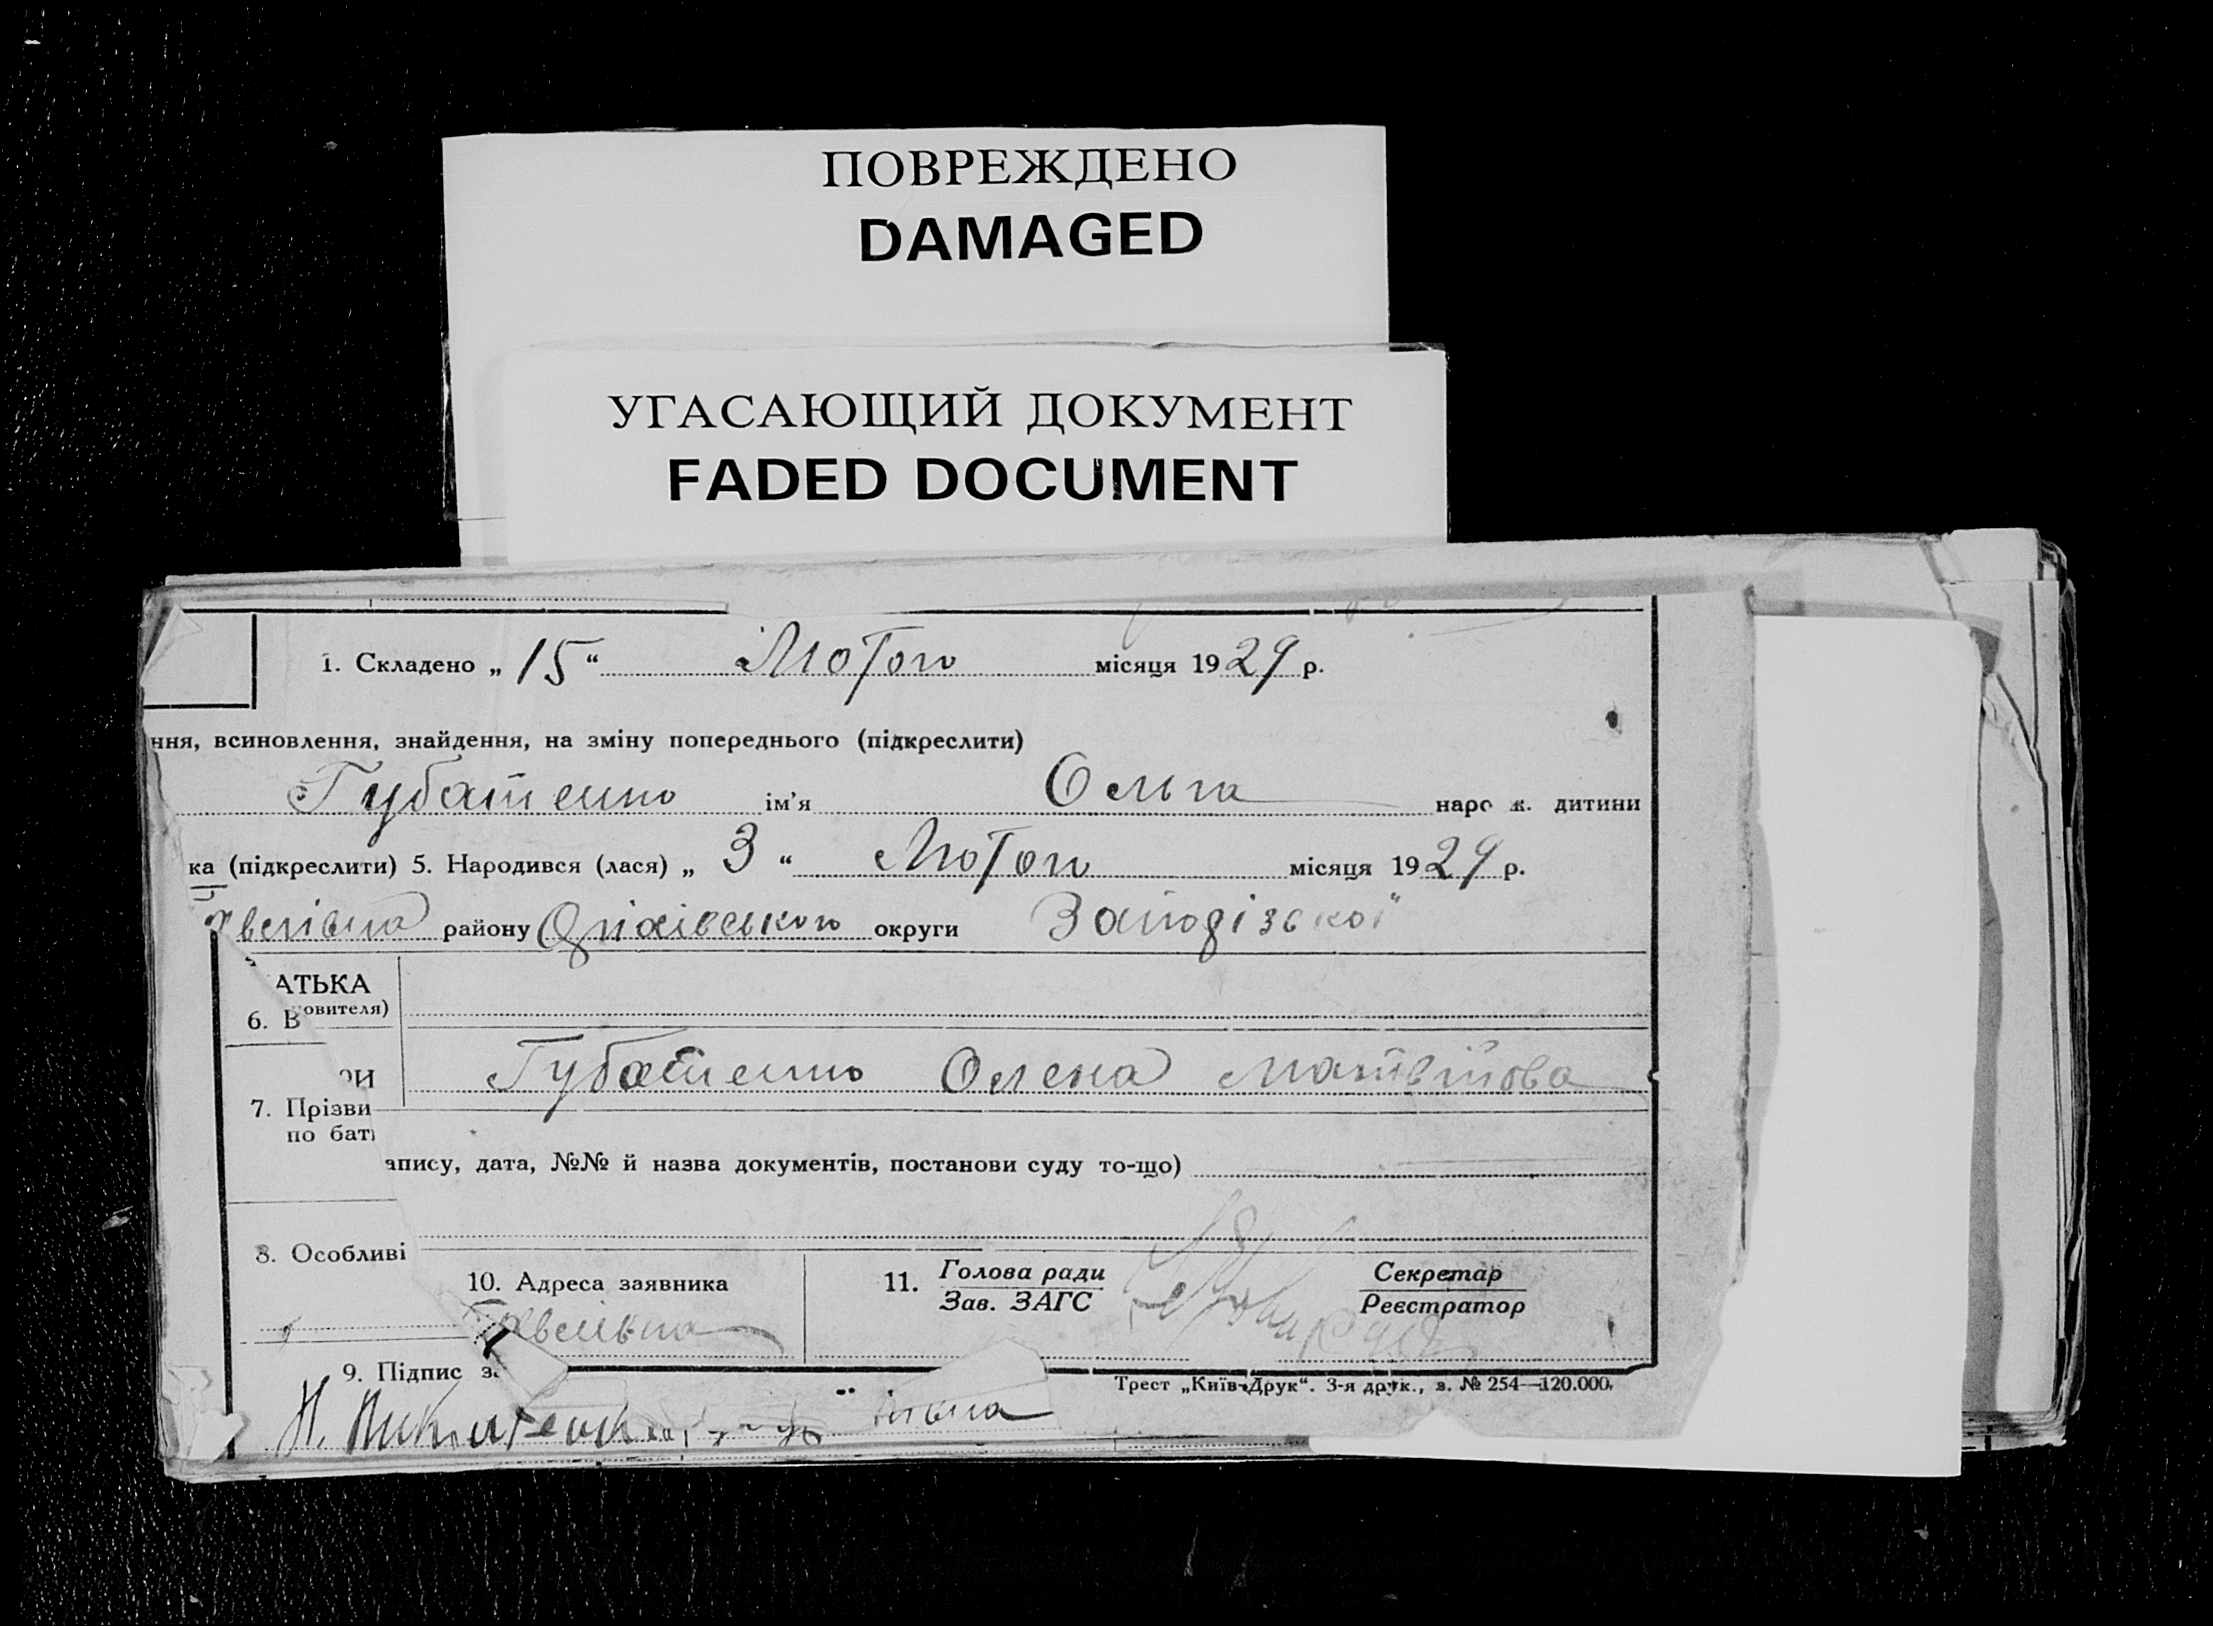 ПОВРЕЖДЕНО
DAMAGED
УГАСАЮЩИЙ ДОКУМЕНТ
FADED DOCUMENT
1. Складено „ 15 “ Лютого місяця 1929 р.
ння, всиновлення, знайдення, на зміну попереднього (підкреслити)
Губатенко ім'я Ольга нар ж. дитини
ка (підкреслити) 5. Народився (лася) „ 3 “ Лютого місяця 1929 р.
району Оріхівського округи Запорізької
АТЬКА
овителя)
6. В
РИ Губатенко Олена Матвійова
7. Прізви
по бат
апису, дата, №№ й назва документів, постанови суду то-що)
8. Особливі
10. Адреса заявника 11. Голова ради Секретар
Зав. ЗАГС Реєстратор
9. Підпис за
Трест „Київ-Друк“. 3-я друк., з. № 254—120.000.